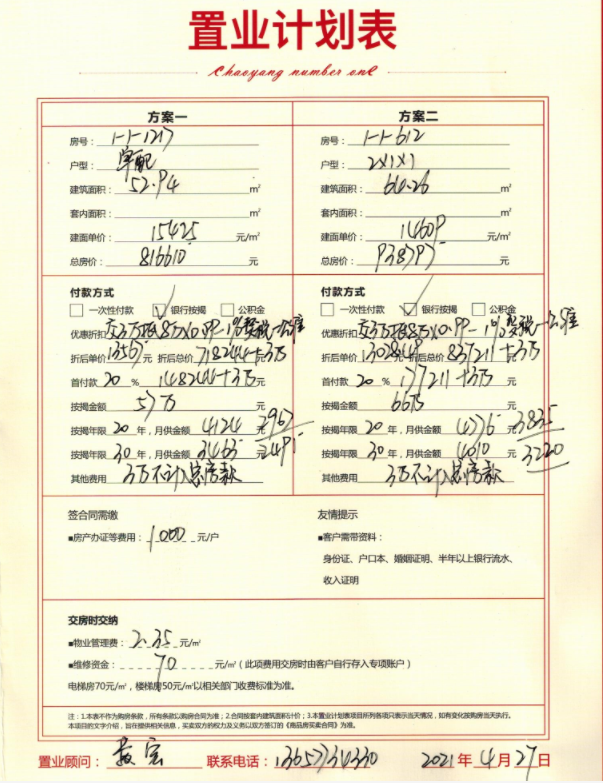 置业计划表
Chaoyang number one
方案一
房号： 1-1-1217
户型： 单配
建筑面积： 52.94 m²
套内面积： m²
建面单价： 15425 元/m²
总房价： 816610 元
方案二
房号： 1-1-612
户型： 2×1×1
建筑面积： 64.26 m²
套内面积： m²
建面单价： 14609 元/m²
总房价： 938797 元
付款方式
一次性付款 ✓银行按揭 公积金
优惠折扣 交3万抵8万×0.99-1%
折后单价 13567 元 折后总价 718244+3万
首付款 20 % 148244+3万 元
按揭金额 57万 元
按揭年限 20 年，月供金额 4124 元 2967
按揭年限 30 年，月供金额 3465 元 2491
其他费用 3万不计入总房款
付款方式
一次性付款 ✓银行按揭 公积金
优惠折扣 交3万抵8万×0.99-1%
折后单价 13028 折后总价 837211+3万
首付款 20 % 177211+3万 元
按揭金额 66万 元
按揭年限 20 年，月供金额 4776 元 3835
按揭年限 30 年，月供金额 4010 元 3220
其他费用 3万不计入总房款
签合同需缴
■房产办证等费用： 1000 元/户
友情提示
■客户需带资料：
身份证、户口本、婚姻证明、半年以上银行流水、
收入证明
交房时交纳
■物业管理费： 2.35 元/㎡
■维修资金： 70 元/㎡（此项费用交房时由客户自行存入专项账户）
电梯房70元/㎡，楼梯房50元/㎡以相关部门收费标准为准。
注：1.本表不作为购房条款，所有条款以购房合同为准；2.合同按套内建筑面积计价；3.本置业计划表项目所列各项只表示当天情况，如有变化按购房当天执行。
本项目的文字介绍，旨在提供相关信息，买卖双方的权力及义务以双方签订的《商品房买卖合同》为准。
置业顾问： 联系电话： 13657734330 2021 年 4 月 27 日